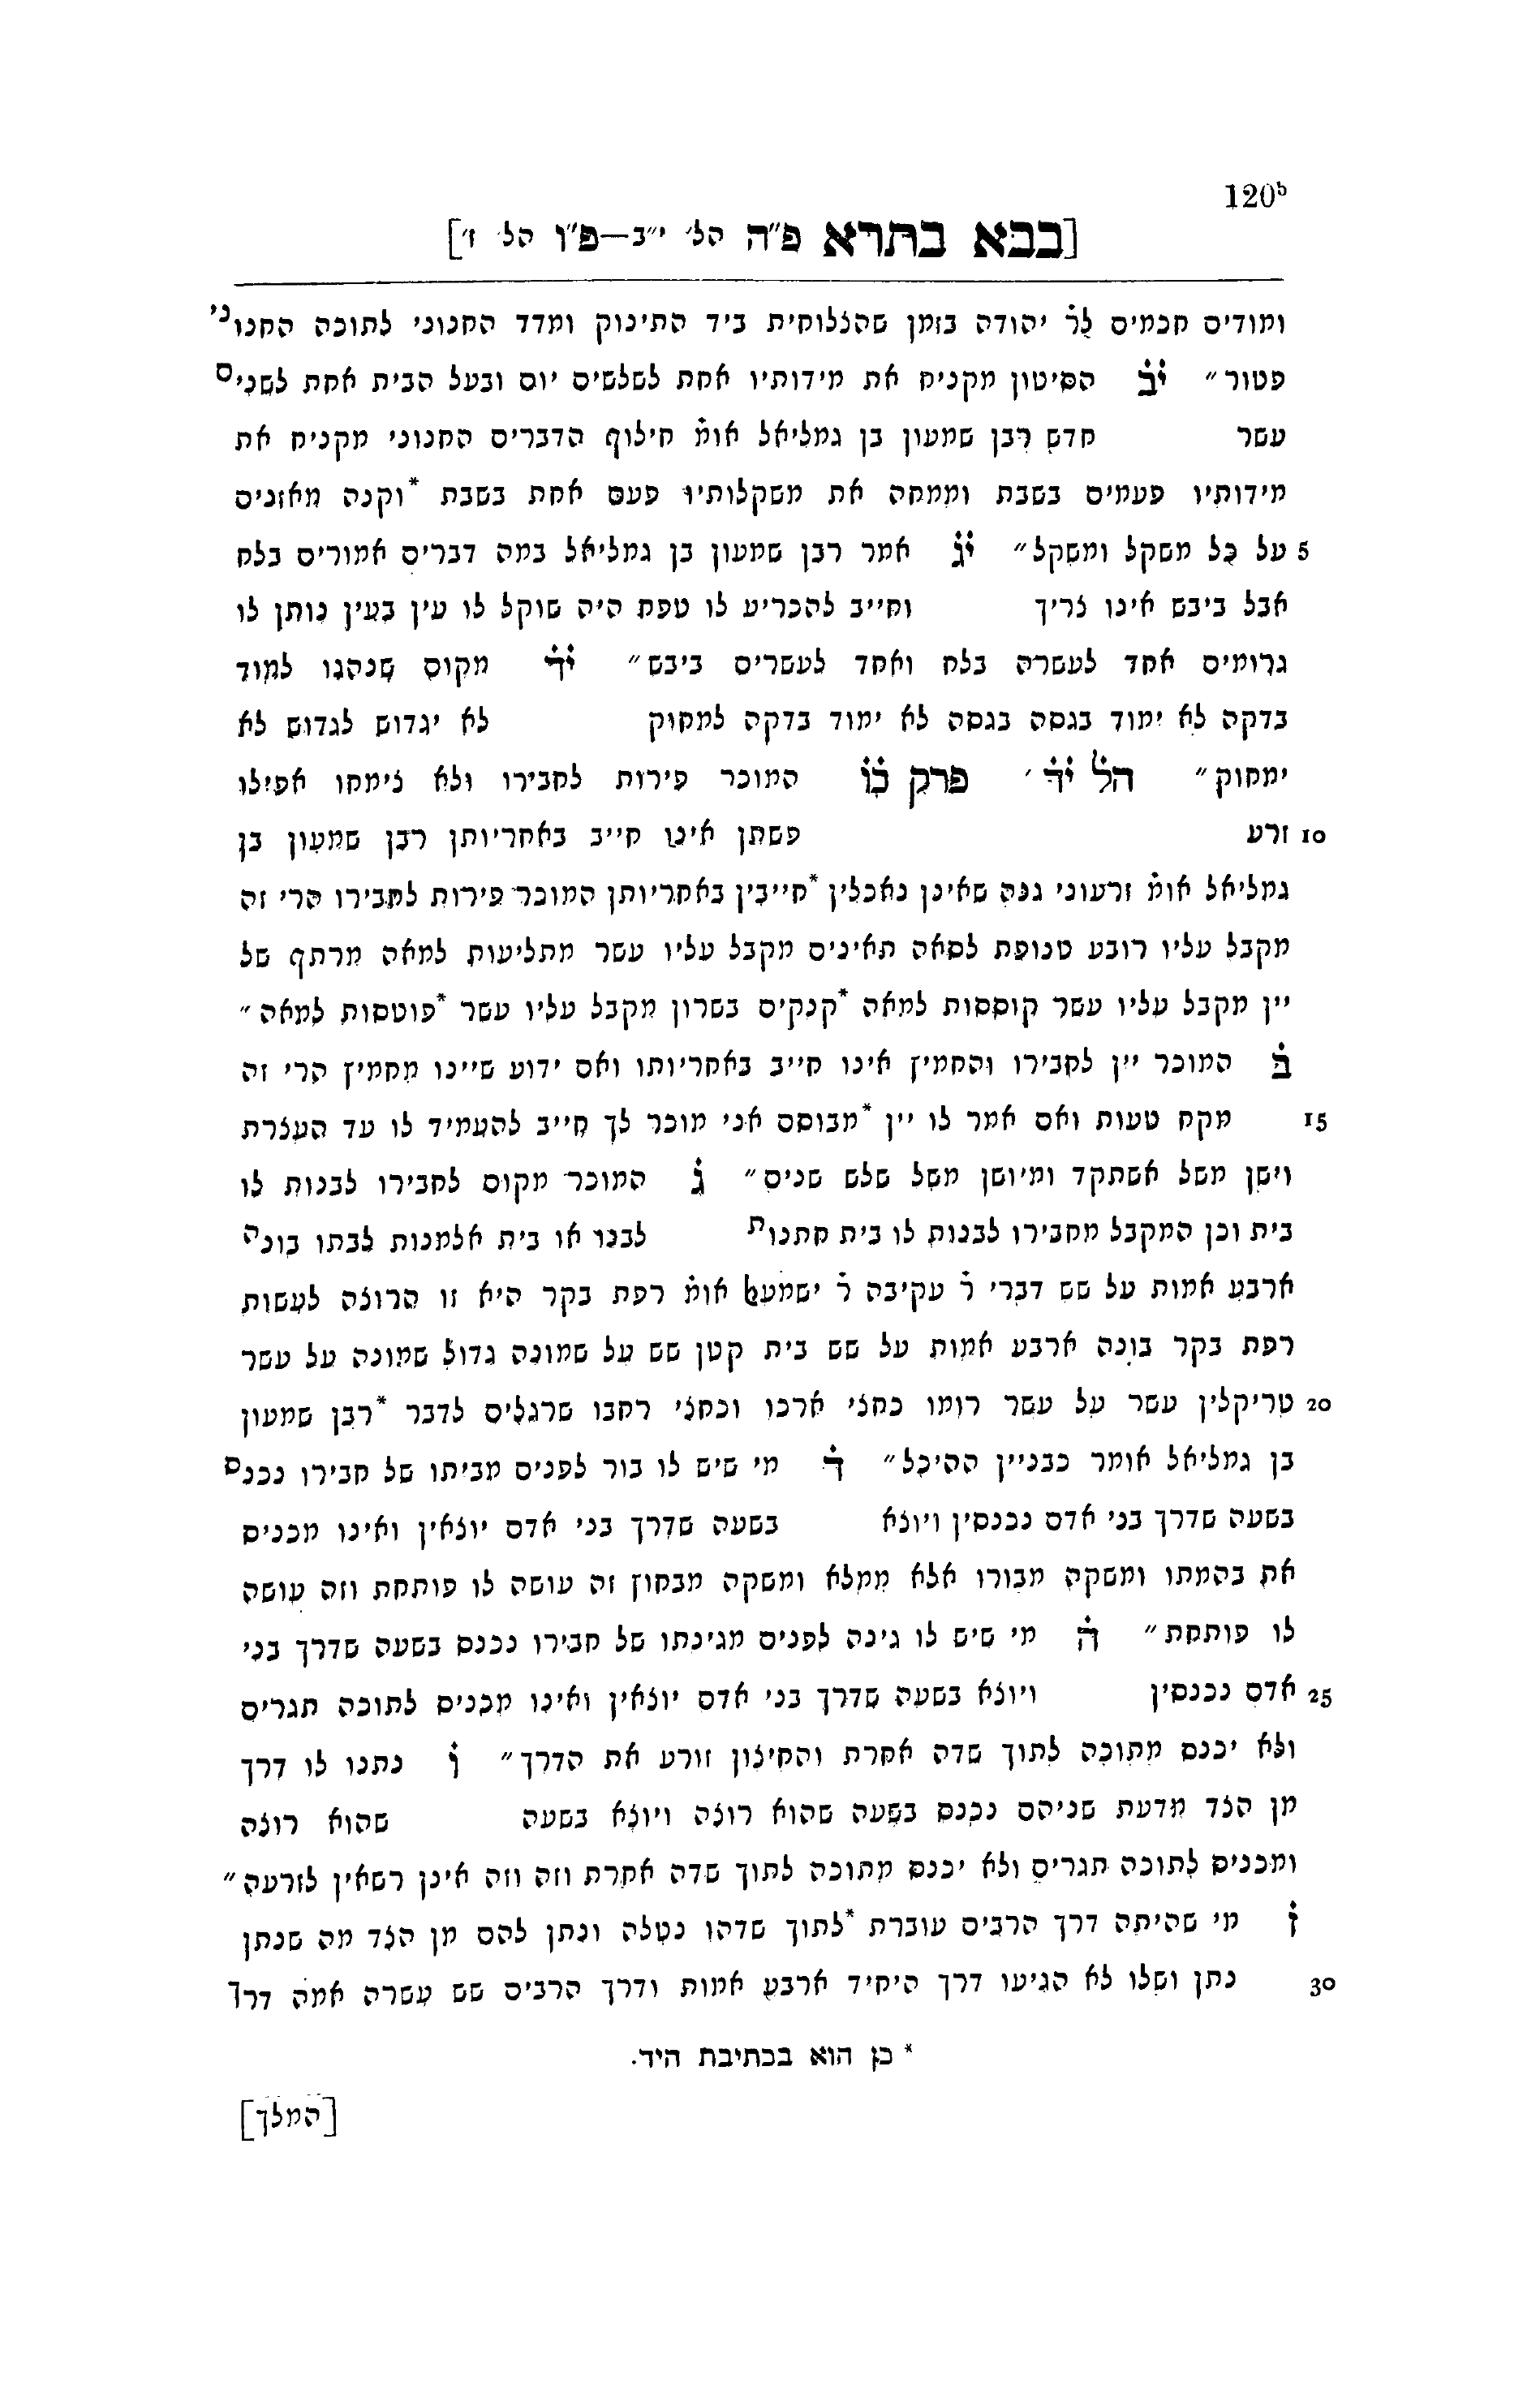 120ᵇ
[בבא בתרא פ״ה הל׳ י״ב—פ״ו הל׳ ז׳]
ומודים חכמים לר̇ יהודה בזמן שהצלוחית ביד התינוק ומדד החנוני לתוכה החנוני
פטור״ יב̇ הסיטון מקניח את מידותיו אחת לשלשים יום ובעל הבית אחת לשנים
עשר חדש רבן שמעון בן גמליאל אומ̇ חילוף הדברים החנוני מקניח את
מידותיו פעמים בשבת וממחה את משקלותיו פעם אחת בשבת *וקנה מאזנים
5 על כל משקל ומשקל״ יג̇ אמר רבן שמעון בן גמליאל במה דברים אמורים בלח
אבל ביבש אינו צריך וחייב להכריע לו טפח היה שוקל לו עין בעין נותן לו
גרומים אחד לעשרה בלח ואחד לעשרים ביבש״ יד̇ מקום שנהגו למוד
בדקה לא ימוד בגסה בגסה לא ימוד בדקה למחוק לא יגדוש לגדוש לא
ימחוק״ הל̇ יד̇ ׳ פרק ב̇ו̇ המוכר פירות לחבירו ולא צימחו אפילו
10 זרע פשתן אינו חייב באחריותן רבן שמעון בן
גמליאל אומ̇ זרעוני גנה שאינן נאכלין *חייבין באחריותן המוכר פירות לחבירו הרי זה
מקבל עליו רובע טנופת לסאה תאינים מקבל עליו עשר מתליעות למאה מרתף של
יין מקבל עליו עשר קוססות למאה *קנקים בשרון מקבל עליו עשר *פוטסות למאה״
ב̇ המוכר יין לחבירו והחמיץ אינו חייב באחריותו ואם ידוע שיינו מחמיץ הרי זה
15 מקח טעות ואם אמר לו יין *מבוסם אני מוכר לך חייב להעמיד לו עד העצרת
וישן משל אשתקד ומיושן משל שלש שנים״ ג̇ המוכר מקום לחבירו לבנות לו
בית וכן המקבל מחבירו לבנות לו בית חתנות לבנו או בית אלמנות לבתו בונה
ארבע אמות על שש דברי ר̇ עקיבה ר̇ ישמעאל אומ̇ רפת בקר היא זו הרוצה לעשות
רפת בקר בונה ארבע אמות על שש בית קטן שש על שמונה גדול שמונה על עשר
20 טריקלין עשר על עשר רומו כחצי ארכו וכחצי רחבו שרגלים לדבר *רבן שמעון
בן גמליאל אומר כבניין ההיכל״ ד̇ מי שיש לו בור לפנים מביתו של חבירו נכנס
בשעה שדרך בני אדם נכנסין ויוצא בשעה שדרך בני אדם יוצאין ואינו מכניס
את בהמתו ומשקה מבורו אלא ממלא ומשקה מבחוץ זה עושה לו פותחת וזה עושה
לו פותחת״ ה̇ מי שיש לו גינה לפנים מגינתו של חבירו נכנס בשעה שדרך בני
25 אדם נכנסין ויוצא בשעה שדרך בני אדם יוצאין ואינו מכניס לתוכה תגרים
ולא יכנס מתוכה לתוך שדה אחרת והחיצון זורע את הדרך״ ו̇ נתנו לו דרך
מן הצד מדעת שניהם נכנס בשעה שהוא רוצה ויוצא בשעה שהוא רוצה
ומכניס לתוכה תגרים ולא יכנס מתוכה לתוך שדה אחרת וזה וזה אינן רשאין לזרעה״
ז̇ מי שהיתה דרך הרבים עוברת *לתוך שדהו נטלה ונתן להם מן הצד מה שנתן
30 נתן ושלו לא הגיעו דרך היחיד ארבע אמות ודרך הרבים שש עשרה אמה דרך
* כן הוא בכתיבת היד.
[המלך]